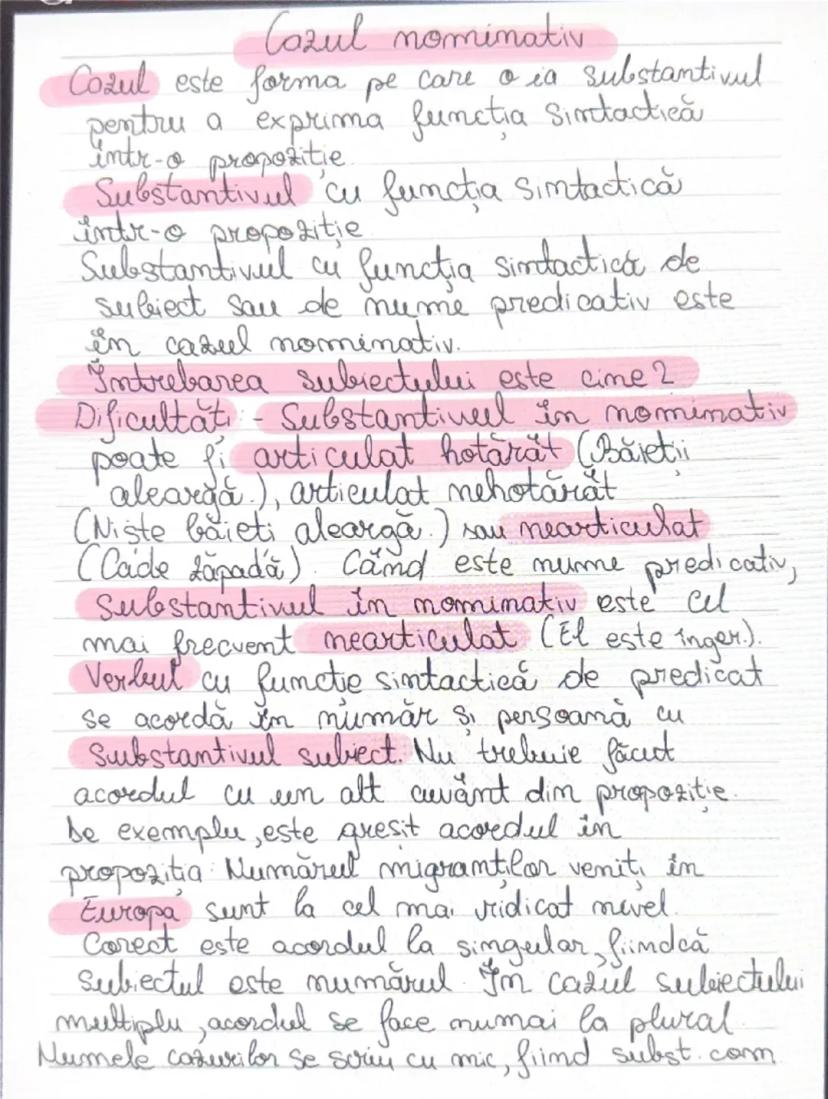 Cazul nominativ
Cazul este forma pe care o ia substantivul
pentru a exprima funcția sintactică
într-o propoziție.
Substantivul cu funcția sintactică
într-o propoziție
Substantivul cu funcția sintactică de
subiect sau de nume predicativ este
în cazul nominativ.
Întrebarea subiectului este cine?
Dificultăți - Substantivul în nominativ
poate fi articulat hotărât (Băieții
aleargă.), articulat nehotărât
(Niște băieți aleargă.) sau nearticulat
(Cade zăpadă). Când este nume predicativ,
substantivul în nominativ este cel
mai frecvent nearticulat (El este înger.).
Verbul cu funcție sintactică de predicat
se acordă în număr și persoană cu
substantivul subiect. Nu trebuie făcut
acordul cu un alt cuvânt din propoziție.
De exemplu, este greșit acordul în
propoziția: Numărul migranților veniți în
Europa sunt la cel mai ridicat nivel.
Corect este acordul la singular, fiindcă
subiectul este numărul. În cazul subiectului
multiplu, acordul se face numai la plural.
Numele cazurilor se scriu cu mic, fiind subst. com